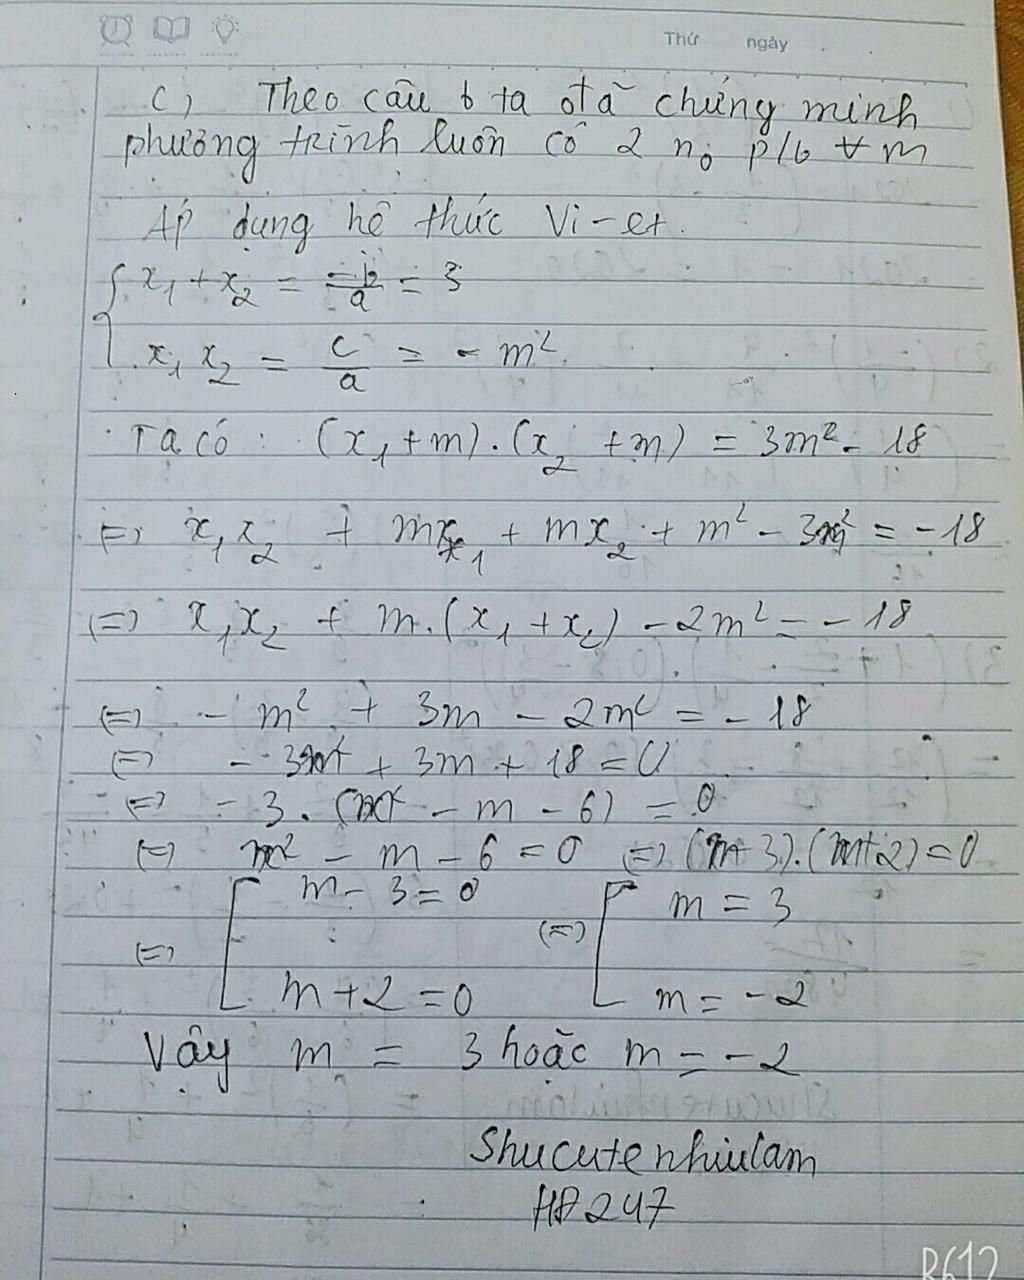 Thứ ngày
c) Theo câu b ta đã chứng minh
phương trình luôn có 2 n0 p/b ∀ m
Áp dụng hệ thức Vi-et.
x1 + x2 = -b/a = 3
x1 x2 = c/a = - m²
Ta có : (x1 + m) . (x2 + m) = 3m² - 18
(=) x1 x2 + mx1 + mx2 + m² - 3m² = -18
(=) x1x2 + m.(x1 + x2) - 2m² = - 18
(=) - m² + 3m - 2m² = - 18
(=) - 3m² + 3m + 18 = 0
(=) - 3 . (m² - m - 6) = 0
(=) m² - m - 6 = 0 (=) (m-3).(m+2) = 0
(=) [ m - 3 = 0 (=) [ m = 3
m + 2 = 0 m = - 2
Vậy m = 3 hoặc m = - 2
Shucutenhiulam
HD247
B612